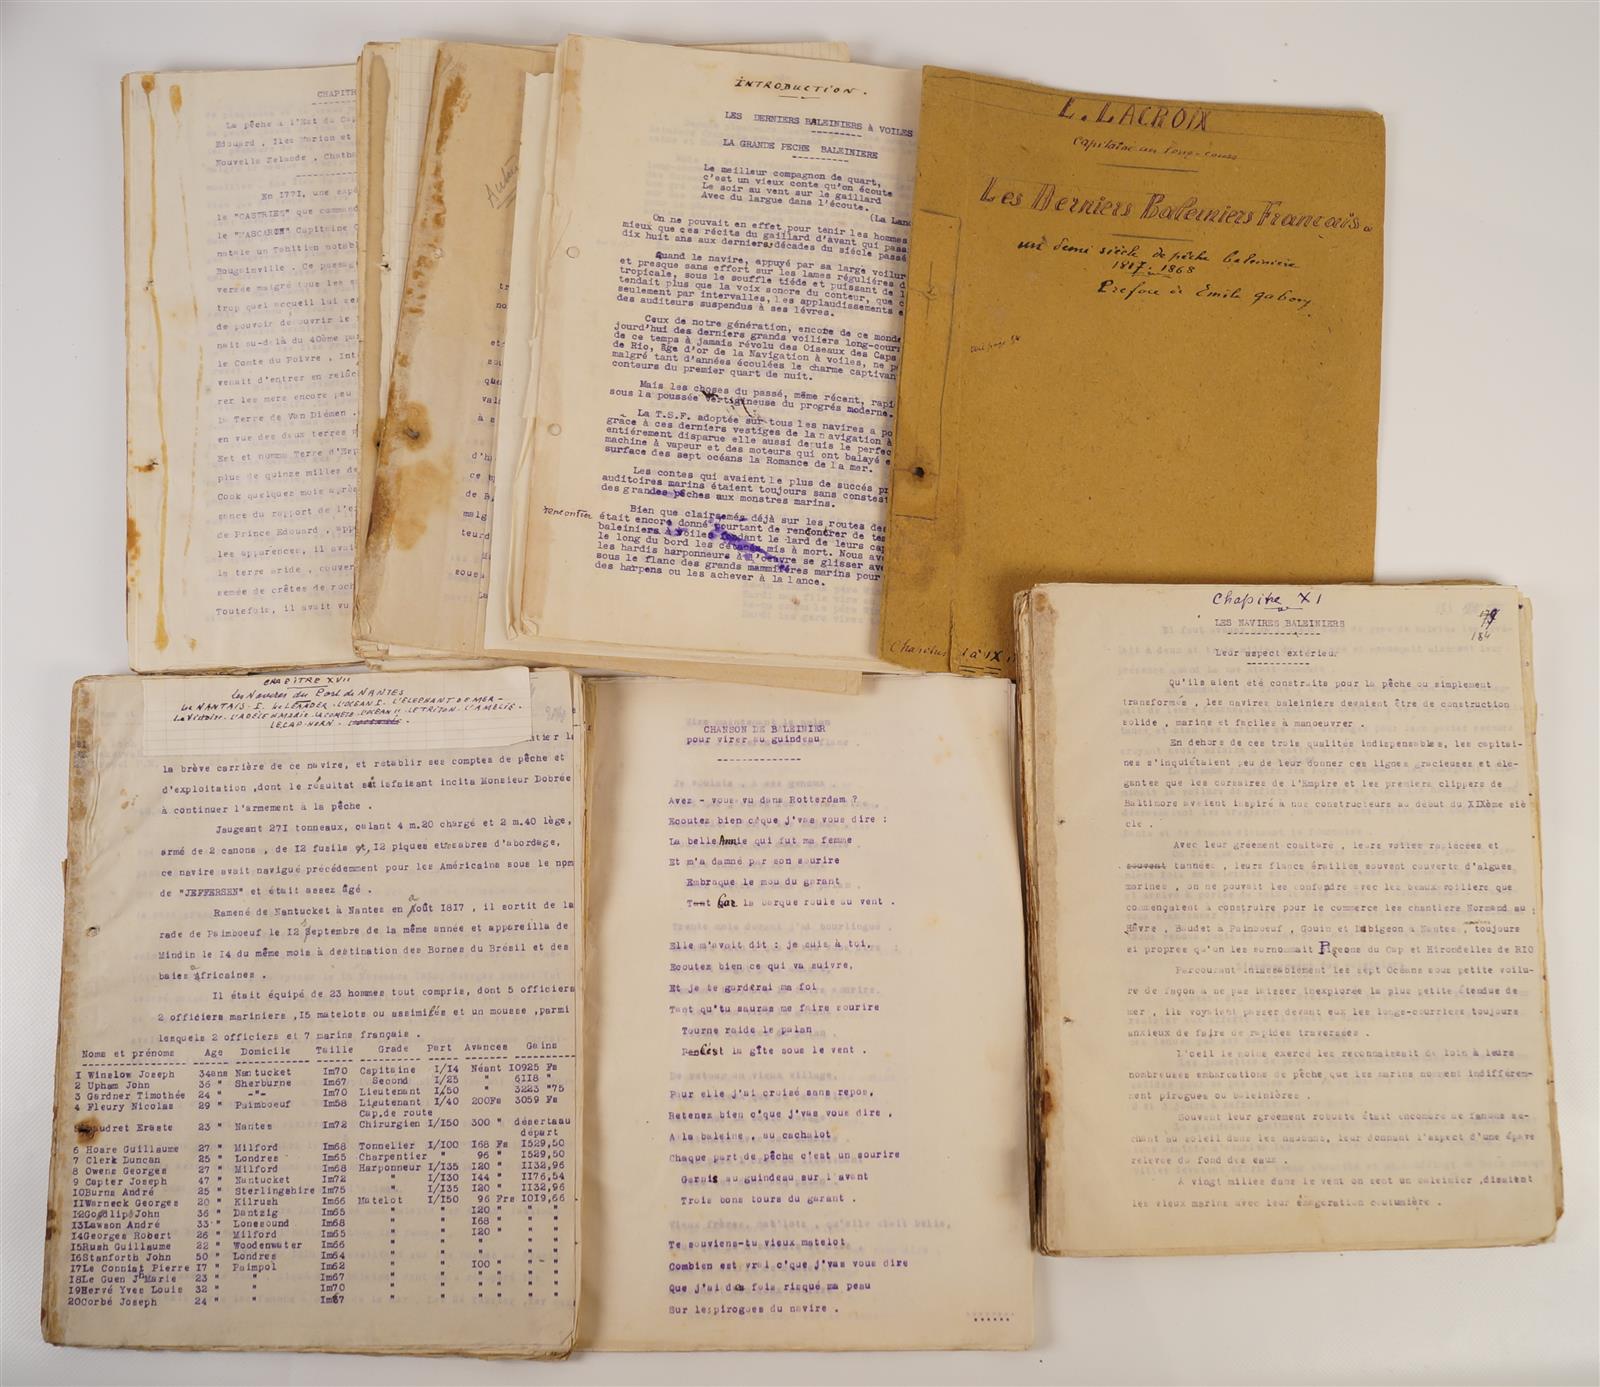 CHAPITR
La pêche à l'Est du Cap
Edouard , Iles Marion et
Nouvelle Zelande , Chatha
En I77I, une expé
le "CASTRIES" que command
le "MASCARIN" Capitaine C
natale un Tahitien notabl
Bougainville . Ce passage
versée malgré tous les s
trop quel accueil lui se
de pouvoir de ouvrir le
nait au-delà du 40ème pa
le Comte du Poivre , Int
venait d'entrer en relâc
rer les mers encore peu
la Terre de Van Diémen .
en vue des deux terres
Est et nomma Terre d'Esp
plus de quinze milles de
Cook quelques mois après
sance du rapport de l'e
de Prince Edouard , app
les apparences, il avai
la terre aride , couver
semée de crêtes de roch
Toutefois, il avait vu
INTRODUCTION .
LES DERNIERS BALEINIERS à VOILES
LA GRANDE PECHE BALEINIERE
Le meilleur compagnon de quart,
c'est un vieux conte qu'on écoute
Le soir au vent sur le gaillard
Avec du largue dans l'écoute.
(La Lan
On ne pouvait en effet pour tenir les hommes
mieux que ces récits du gaillard d'avant qui passa
dix huit ans aux dernières décades du siècle passé
Quand le navire, appuyé par sa large voilur
et presque sans effort sur les lames régulières d
tropicale, sous le souffle tiède et puissant de l
tendait plus que la voix sonore du conteur, que c
seulement par intervalles, les applaudissements e
des auditeurs suspendus à ses lèvres.
Ceux de notre génération, encore de ce monde
jourd'hui des derniers grands voiliers long-cour
de ce temps à jamais révolu des Oiseaux des Caps
de Rio, Age d'or de la Navigation à voiles, ne p
malgré tant d'années écoulées le charme captivan
conteurs du premier quart de nuit.
Mais les choses du passé, même récent, rapi
sous la poussée vertigineuse du progrés moderne.
La T.S.F. adoptée sur tous les navires a po
grâce à ces derniers vestiges de la navigation à
entiérement disparue elle aussi depuis le perfec
machine à vapeur et des moteurs qui ont balayé
surface des sept océans la Romance de la mer.
Les contes qui avaient le plus de succés p
auditoires marins étaient toujours sans constest
des grandes pêches aux monstres marins.
rencontrer
Bien que clairsemés déjà sur les routes de
était encore donné pourtant de rencontrer de te
baleiniers à voiles fondant le lard de leurs ca
le long du bord les cétacés mis à mort. Nous av
les hardis harponneurs à l'oeuvre se glisser av
sous le flanc des grands mammifères marins pour
des harpons ou les achever à la lance.
L. LACROIX
Capitaine au long-cours
Les Derniers Baleiniers Français
un demi siècle de pêche baleinière
1817-1868
Préface de Emile Gabory
Chapitres I à IX
CHAPITRE XVII
Les Navires du Port de NANTES
Le NANTAIS - I. Le LEADER - L'OCEAN I - L'ELEPHANT DE MER -
La Victoire - L'ADELE ET MARIE - LA COMETE - L'OCEAN II - LE TRITON - L'AMELIE -
LE CAP-HORN -
la brève carrière de ce navire, et rétablir ses comptes de pêche et
d'exploitation ,dont le résultat satisfaisant incita Monsieur Dobrée
à continuer l'armement à la pêche .
Jaugeant 27I tonneaux, calant 4 m.20 chargé et 2 m.40 lège,
armé de 2 canons , de I2 fusils et,I2 piques et sabres d'abordage,
ce navire avait navigué précédemment pour les Américains sous le nom
de "JEFFERSEN" et était assez âgé .
Ramené de Nantucket à Nantes en août I8I7 , il sortit de la
rade de Paimboeuf le I2 septembre de la même année et appareilla de
Mindin le I4 du même mois à destination des Bornes du Brésil et des
baies Africaines .
Il était équipé de 23 hommes tout compris, dont 5 officiers
2 officiers mariniers ,I5 matelots ou assimilés et un mousse ,parmi
lesquels 2 officiers et 7 marins français .
Noms et prénoms Age Domicile Taille Grade Part Avances Gains
I Winslow Joseph 34ans Nantucket Im70 Capitaine I/I4 Néant I0925 Fs
2 Upham John 36 " Sherburne Im67 Second I/25 " 6II8 "
3 Gardner Timothée 24 " -"- Im70 Lieutenant I/50 " 3223 "75
4 Fleury Nicolas 29 " Paimboeuf Im58 Lieutenant I/40 200Fs 3059 Fs
Cap.de route
audret Eraste 23 " Nantes Im72 Chirurgien I/I50 300 " déserteau
départ
6 Hoare Guillaume 27 " Milford Im68 Tonnelier I/I00 I68 Fs I529,50
7 Clerk Duncan 25 " Londres Im65 Charpentier " 96 " I529,50
8 Owens Georges 27 " Milford Im68 Harponneur I/I35 I20 " II32,96
9 Capter Joseph 47 " Nantucket Im72 " I/I30 I44 " II76,54
I0Burns André 25 " Sterlingshire Im75 " I/I35 I20 " II32,96
IIWarneck Georges 20 " Kilrush Im66 Matelot I/I50 96 Frs I0I9,66
I2Godlip John 36 " Dantzig Im65 " " I20 " " "
I3Lawson André 33 " Lonesound Im68 " " I68 " "
I4Georges Robert 26 " Milford Im65 " " I20 " " "
I5Rush Guillaume 22 " Woodenwater Im66 " " " " "
I6Stanforth John 50 " Londres Im64 " " " " "
I7Le Conniat Pierre I7 " Paimpol Im62 " " I00 " " "
I8Le Guen Jn Marie 23 " " Im67 " " " " "
I9Hervé Yves Louis 32 " " Im70 " " " " "
20Corbé Joseph 24 " " Im67 " " " " "
CHANSON DE BALEINIER
pour virer au guindeau
Avez - vous vu dans Rotterdam ?
Ecoutez bien c'que j'vas vous dire :
La belle Annie qui fut ma femme
Et m'a damné par son sourire
Embraque le mou du garant
Car la barque roule au vent .
Elle m'avait dit : je suis à toi,
Ecoutez bien ce qui va suivre,
Et je te garderai ma foi
Tant qu'tu sauras me faire sourire
Tourne raide le palan
c'est la gîte sous le vent .
Pour elle j'ai croisé sans repos,
Retenez bien c'que j'vas vous dire ,
A la baleine , au cachalot
Chaque part de pêche c'est un sourire
Garnis au guindeau sur l'avant
Trois bons tours du garant .
Te souviens-tu vieux matelot
Combien est vrai c'que j'vas vous dire
Que j'ai des fois risqué ma peau
Sur les pirogues du navire .
......
Chapitre XI
184
LES NAVIRES BALEINIERS
Leur aspect extérieur
Qu'ils aient été construits pour la pêche ou simplement
transformés , les navires baleiniers devaient être de construction
solide , marins et faciles à manoeuvrer .
En dehors de ces trois qualités indispensables, les capitai-
nes s'inquiétaient peu de leur donner ces lignes gracieuses et élé-
gantes que les corsaires de l'Empire et les premiers clippers de
Baltimore avaient inspiré à nos constructeurs au début du XIXème siè
cle .
Avec leur greement coaltaré , leurs voiles rapiécées et
souvent tannées , leurs flancs éraillés souvent couverts d'algues
marines , on ne pouvait les confondre avec les beaux voiliers que
commençaient à construire pour le commerce les chantiers Normand au
Hâvre , Baudet à Paimboeuf , Gouin et Dubigeon à Nantes , toujours
si propres qu'on les surnommait Pigeons du Cap et Hirondelles de RIO
Parcourant inlassablement les sept Océans sous petite voilu-
re de façon à ne pas laisser inexplorée la plus petite étendue de
mer , ils voyaient passer devant eux les longs-courriers toujours
anxieux de faire de rapides traversées .
L'oeil le moins exercé les reconnaissait de loin à leurs
nombreuses embarcations de pêche que les marins nomment indifférem-
ment pirogues ou baleinières .
Souvent leur greement robuste était encombré de fanons sé-
chant au soleil dans les haubans, leur donnant l'aspect d'une épave
relevée du fond des eaux .
A vingt milles dans le vent on sent un baleinier ,disaient
les vieux marins avec leur exagération coutumière .